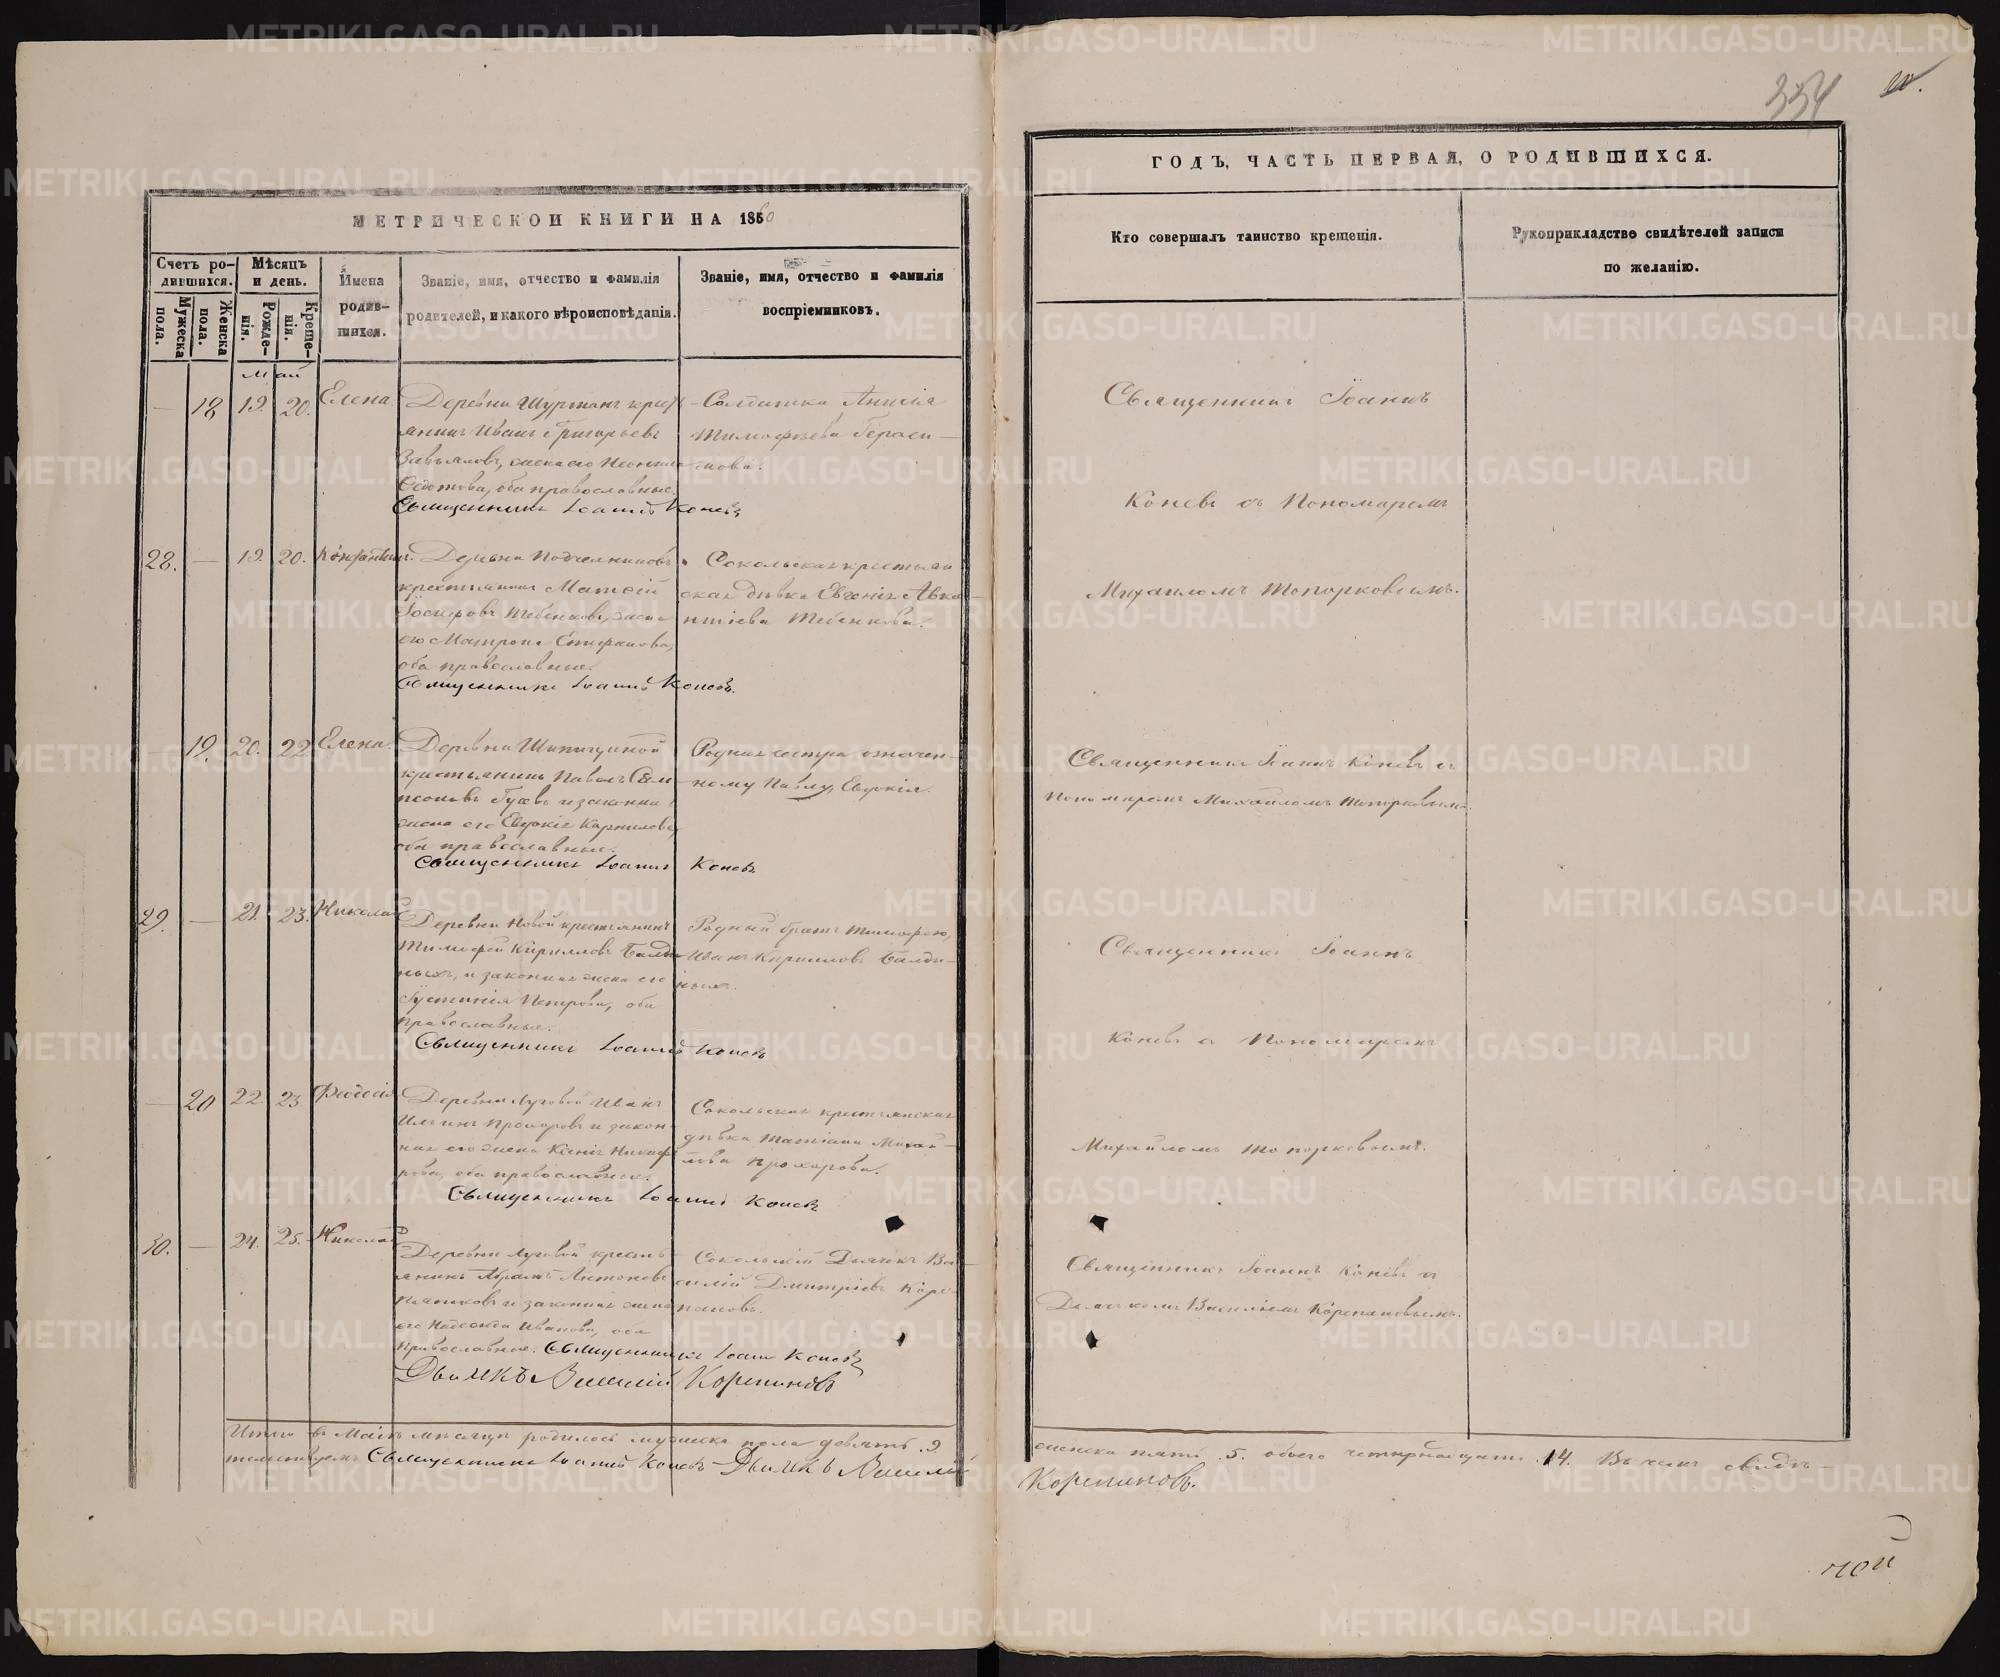 334
МЕТРИЧЕСКОЙ КНИГИ НА 1860
ГОДЪ, ЧАСТЬ ПЕРВАЯ, О РОДИВШИХСЯ.
Счетъ ро-
дившихся.
Мужеска пола.
Женска пола.
Мѣсяцъ
и день.
Рожде-
нія.
Креще-
нія.
Имена
родив-
шихся.
Званіе, имя, отчество и фамилія
родителей, и какого вѣроисповѣданія.
Званіе, имя, отчество и фамилія
воспріемниковъ.
Кто совершалъ таинство крещенія.
Рукоприкладство свидѣтелей записи
по желанію.
Май
— 18 19. 20. Елена
Деревни Шуртанъ крест-
янинъ Иванъ Григорьевъ
Завьяловъ, жена его
Федотова, оба православные.
Священникъ Іоаннъ Коневъ
Солдатка Анисія
Тимофѣева Гераси-
мова.
Священникъ Іоаннъ
Коневъ съ Пономаремъ
Михаиломъ Топорковымъ.
28. — 19. 20. Константинъ.
Деревни
крестьянинъ Матѳей
Тебенковъ, жена
его Матрона Епифанова,
оба православные.
Священникъ Іоаннъ Коневъ.
Сокольская крестьян
ская дѣвка Евгенія Авксе-
нтіева Тебенкова.
— 19. 20. 22 Елена.
Деревни Шипицуной
крестьянинъ Павелъ Сам-
псоновъ и законная
жена его Евдокія Карнилова,
оба православные.
Священникъ Іоаннъ Коневъ
Родная сестра означен-
ному Павлу, Евдокія.
Священникъ Іоаннъ Коневъ съ
Пономаремъ Михаиломъ Топорковымъ.
29. — 21. 23. Николай
Деревни Новой крестьянинъ
Тимофей Кириловъ Балди
ныхъ, и законная жена его
Іустинія Петрова, оба
православные.
Священникъ Іоаннъ Коневъ
Родный братъ Тимофею,
Иванъ Кириловъ Балди-
ныхъ.
Священникъ Іоаннъ
Коневъ съ Пономаремъ
Михаиломъ Топорковымъ.
— 20 22. 23. Феодосія
Деревни Луговой Иванъ
Ильинъ Прохоровъ и закон-
ная его жена Ксенія Никифо
рова, оба православные.
Священникъ Іоаннъ Коневъ
Сокольская крестьянская
дѣвка Татіана Михай-
лова Прохорова.
30. — 24. 25. Николай
Деревни Луговой кресть
янинъ Абрамъ Антоновъ
и законная жена
его Надежда Иванова, оба
православные. Священникъ Іоаннъ Коневъ
Дьячекъ Василій Корепановъ
Сокольскій Дьячекъ Ва-
силій Дмитріевъ Коре-
пановъ.
Священникъ Іоаннъ Коневъ съ
Дьячкомъ Василіемъ Корепановымъ.
Итого въ Маѣ мѣсяцѣ родилось мужеска пола девять. 9
женска пять .5. обоего четырнадцать .14. Въ чемъ свидѣ-
тельствуемъ Священникъ Іоаннъ Коневъ Дьячекъ Василій
Корепановъ.